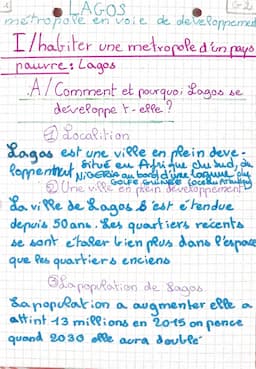 LAGOS
G2
métropole en voie de développement
I/habiter une metropole d'un pays
pauvre : Lagos
A/Comment et pourquoi Lagos se
developpe t-elle ?
① Localition
Lagos est une ville en plein deve-
loppement situé en Afrique du sud, du
NiGERIA au bord d'une lagune du
GOLFE GUINÉE (océan Atlantique)
② Une ville en plein développement
La ville de Lagos s'est étendue
depuis 50 ans. Les quartiers recents
se sont etaler bien plus dans l'espace
que les quartiers enciens
③ La population de Lagos
La population a augmenter elle a
attint 13 millions en 2015 on pence
quand 2030 elle aura doublé